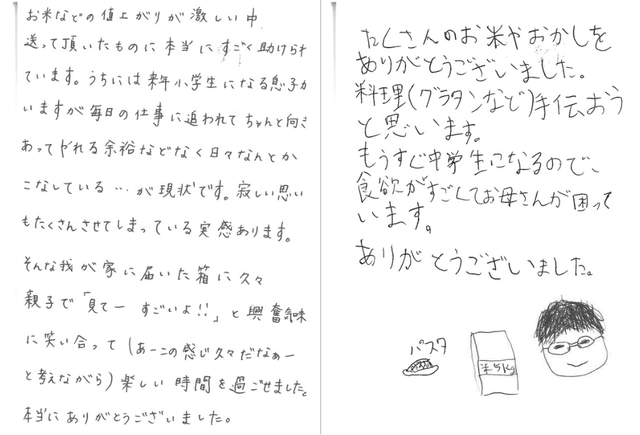 お米などの値上がりが激しい中
送って頂いたものに本当にすごく助けられ
ています。うちには来年小学生になる息子が
いますが毎日の仕事に追われてちゃんと向き
あってやれる余裕などなく日々なんとか
こなしている…が現状です。寂しい思い
もたくさんさせてしまっている実感あります。
そんな我が家に届いた箱に久々
親子で「見てー すごいよ!!」と興奮気味
に笑い合って(あーこの感じ久々だなぁー
と考えながら)楽しい時間を過ごせました。
本当にありがとうございました。
たくさんのお米やおかしを
ありがとうございました。
料理(グラタンなど)手伝おう
と思います。
もうすぐ中学生になるので、
食欲がすごくてお母さんが困って
います。
ありがとうございました。
パスタ
米5kg